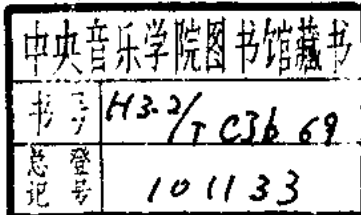 中央音乐学院图书馆藏书
书号 H3.2/T C36 69
总登记号 101133